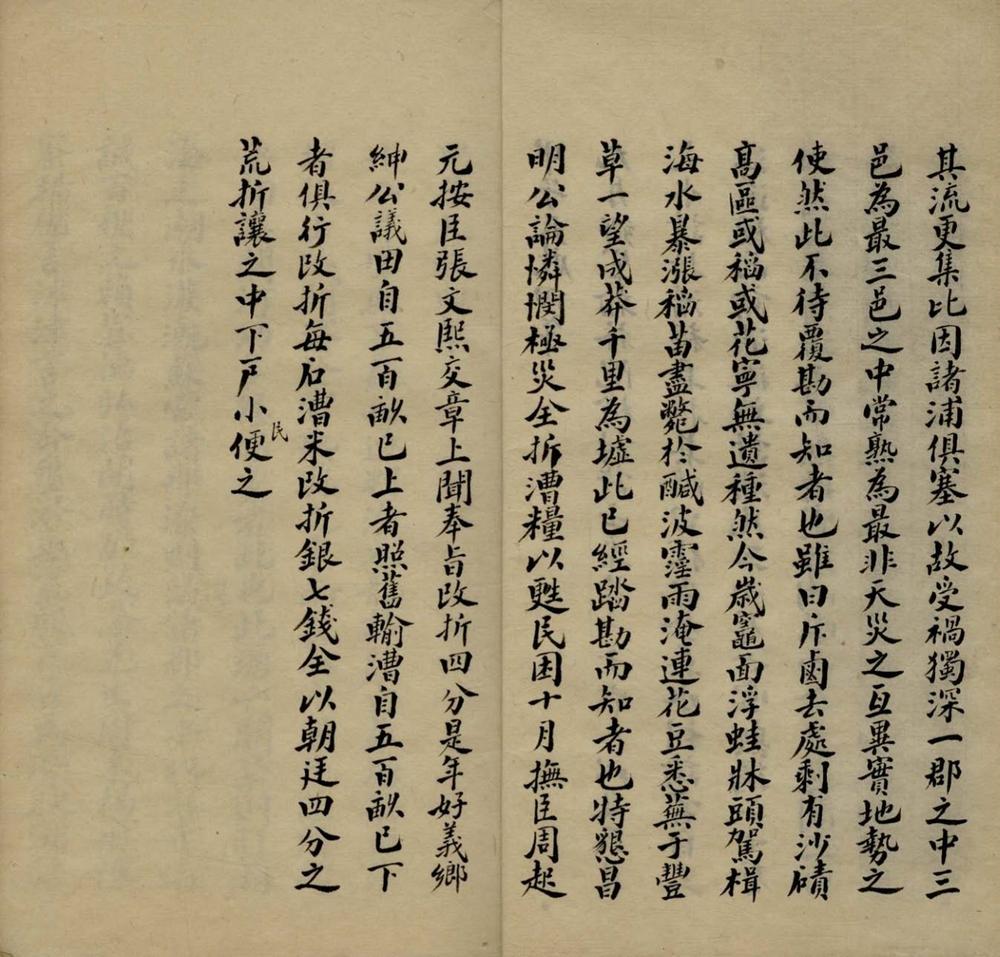 其流更集比因諸浦俱塞以故受禍獨深一郡之中三
邑為最三邑之中常熟為最非天災之亙異實地勢之
使然此不待覆勘而知者也雖曰斥鹵去處剩有沙磧
高區或稻或花寧無遺種然今歲竈面浮蛙牀頭駕楫
海水暴漲稻苗盡斃於醎波霪雨淹連花豆悉蕪于豐
草一望成莽千里為墟此已經踏勘而知者也特懇昌
明公論憐憫極災全折漕糧以甦民困十月撫臣周起
元按臣張文熙交章上聞奉旨改折四分是年好義鄉
紳公議田自五百畝已上者照舊輸漕自五百畝已下
者俱行改折每石漕米改折銀七錢全以朝廷四分之
荒折讓之中下戶小民便之